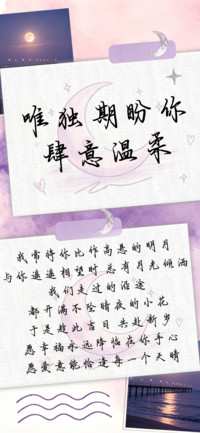 唯独期盼你
肆意温柔
我常将你比作高悬的明月
与你遥遥相望时 总有月光倾洒
我们走过的沿途
都开满不坠暗夜的小花
于是趁此吉日 共赴新岁
愿幸福永远降临在你手心
愿爱意能恰逢每一个天晴